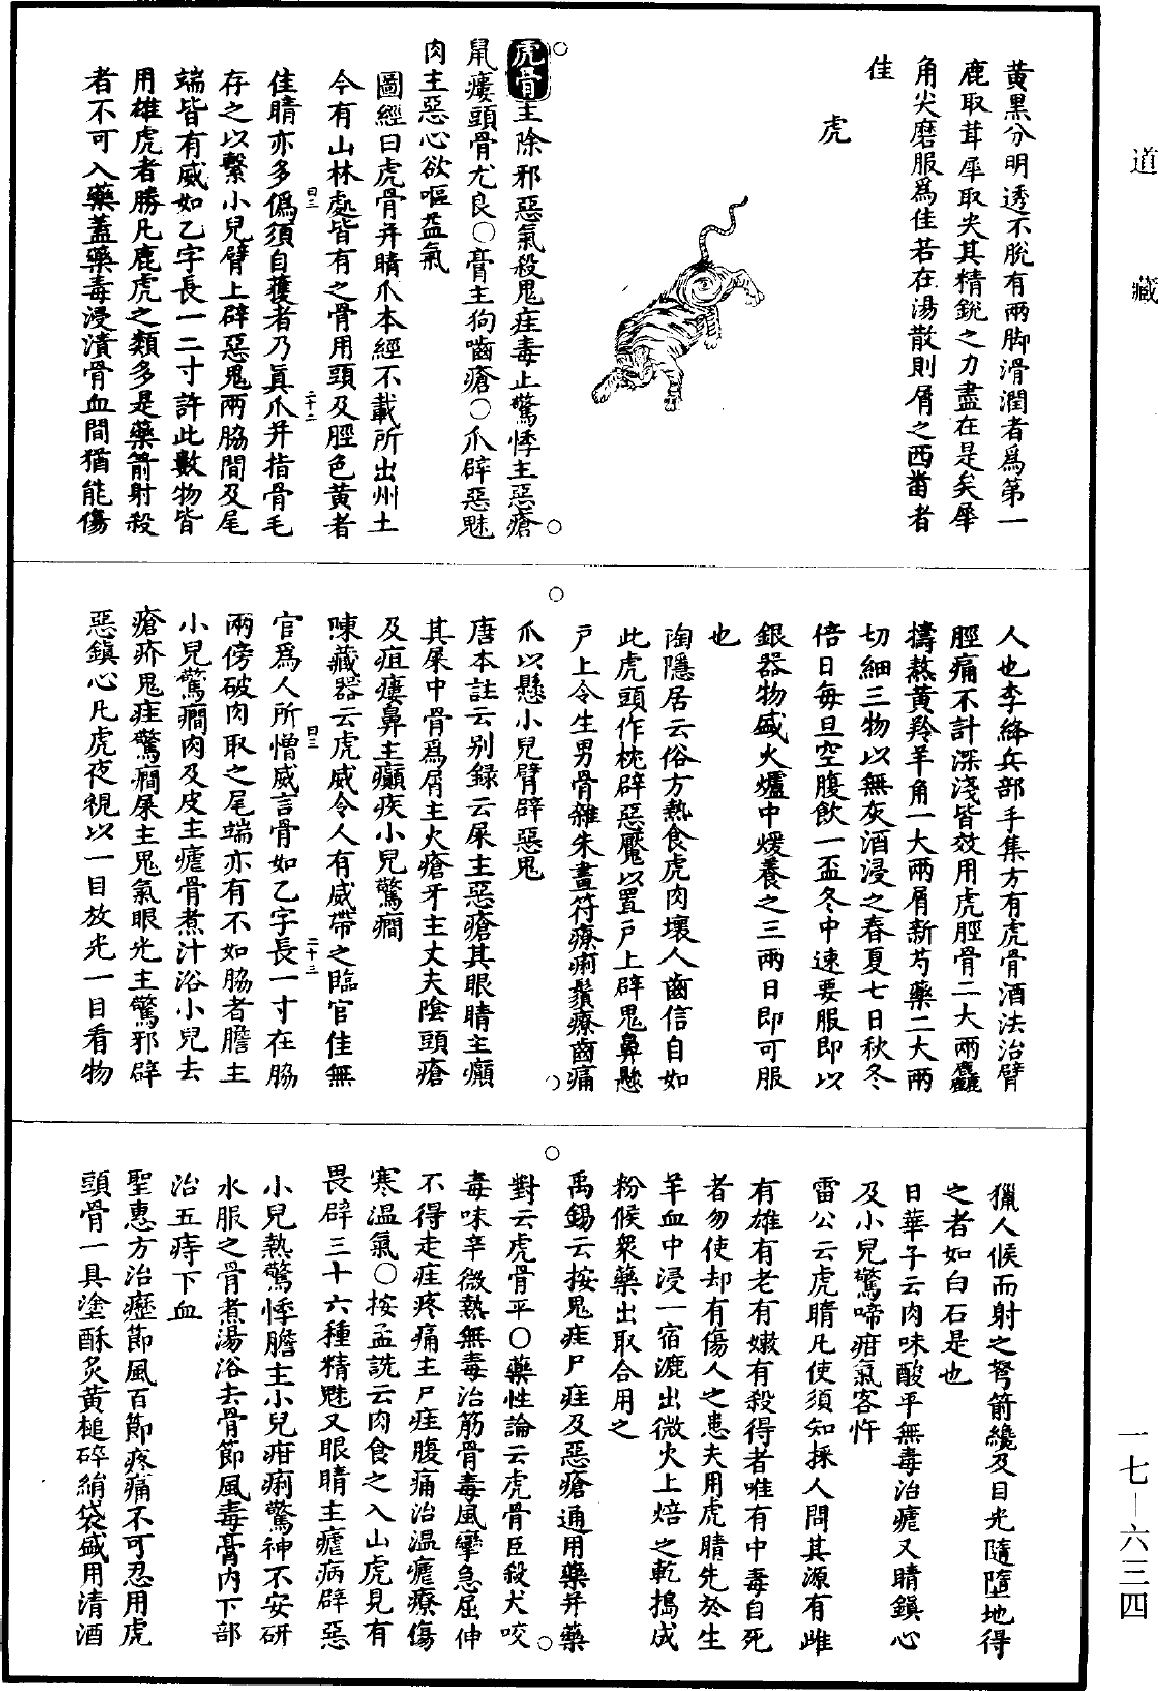 道藏
黃黑分明透不脫有兩脚滑潤者爲第一
鹿取茸犀取尖其精銳之力盡在是矣犀
角尖磨服爲佳若在湯散則屑之西番者
佳
虎
虎骨主除邪惡氣殺鬼疰毒止驚悸主惡瘡
鼠瘻頭骨尤良○膏主狗嚙瘡○爪辟惡魅
肉主惡心欲嘔益氣
圖經曰虎骨并睛爪本經不載所出州土
今有山林處皆有之骨用頭及脛色黃者
佳睛亦多僞須自獲者乃眞爪并指骨毛
存之以繫小兒臂上辟惡鬼兩脇間及尾
端皆有威如乙字長一二寸許此數物皆
用雄虎者勝凡鹿虎之類多是藥箭射殺
者不可入藥蓋藥毒浸漬骨血間猶能傷
曰三
二十二
人也李絳兵部手集方有虎骨酒法治臂
脛痛不計深淺皆效用虎脛骨二大兩麤
擣熬黃羚羊角一大兩屑新芍藥二大兩
切細三物以無灰酒浸之春夏七日秋冬
倍日每旦空腹飲一盃冬中速要服即以
銀器物盛火爐中煖養之三兩日即可服
也
陶隱居云俗方熱食虎肉壞人齒信自如
此虎頭作枕辟惡魘以置戶上辟鬼鼻懸
戶上令生男骨雜朱畫符療痢鬚療齒痛
爪以懸小兒臂辟惡鬼
唐本註云别録云屎主惡瘡其眼睛主癲
其屎中骨爲屑主火瘡牙主丈夫陰頭瘡
及疽瘻鼻主癲疾小兒驚癎
陳藏器云虎威令人有威帶之臨官佳無
官爲人所憎威言骨如乙字長一寸在脇
兩傍破肉取之尾端亦有不如脇者膽主
小兒驚癎肉及皮主瘧骨煮汁浴小兒去
瘡疥鬼疰驚癎屎主鬼氣眼光主驚邪辟
惡鎮心凡虎夜視以一目放光一目看物
曰三
二十三
獵人候而射之弩箭纔及目光隨墮地得
之者如白石是也
日華子云肉味酸平無毒治瘧又睛鎮心
及小兒驚啼疳氣客忤
雷公云虎睛凡使須知採人問其源有雌
有雄有老有嫩有殺得者唯有中毒自死
者勿使却有傷人之患夫用虎睛先於生
羊血中浸一宿漉出微火上焙之乾搗成
粉候衆藥出取合用之
禹錫云按鬼疰尸疰及惡瘡通用藥并藥
對云虎骨平○藥性論云虎骨臣殺犬咬
毒味辛微熱無毒治筋骨毒風攣急屈伸
不得走疰疼痛主尸疰腹痛治温瘧療傷
寒温氣○按孟詵云肉食之入山虎見有
畏辟三十六種精魅又眼睛主瘧病辟惡
小兒熱驚悸膽主小兒疳痢驚神不安研
水服之骨煮湯浴去骨節風毒膏内下部
治五痔下血
聖惠方治歷節風百節疼痛不可忍用虎
頭骨一具塗酥炙黃槌碎絹袋盛用清酒
一七—六三四